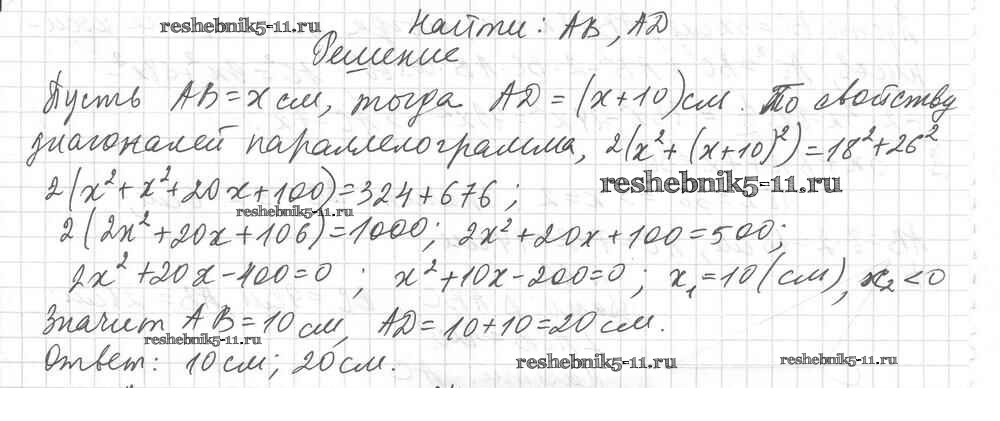 reshebnik5-11.ru Найти: AB, AD
Решение
Пусть AB = x см, тогда AD = (x+10) см. По свойству
диагоналей параллелограмма, 2(x²+(x+10)²)=18²+26²
2(x²+x²+20x+100)=324+676; reshebnik5-11.ru
reshebnik5-11.ru
2(2x²+20x+106)=1000; 2x²+20x+100=500;
2x²+20x-400=0; x²+10x-200=0; x₁=10(см), x₂<0
Значит AB=10см, AD=10+10=20см.
reshebnik5-11.ru
Ответ: 10см; 20см. reshebnik5-11.ru reshebnik5-11.ru